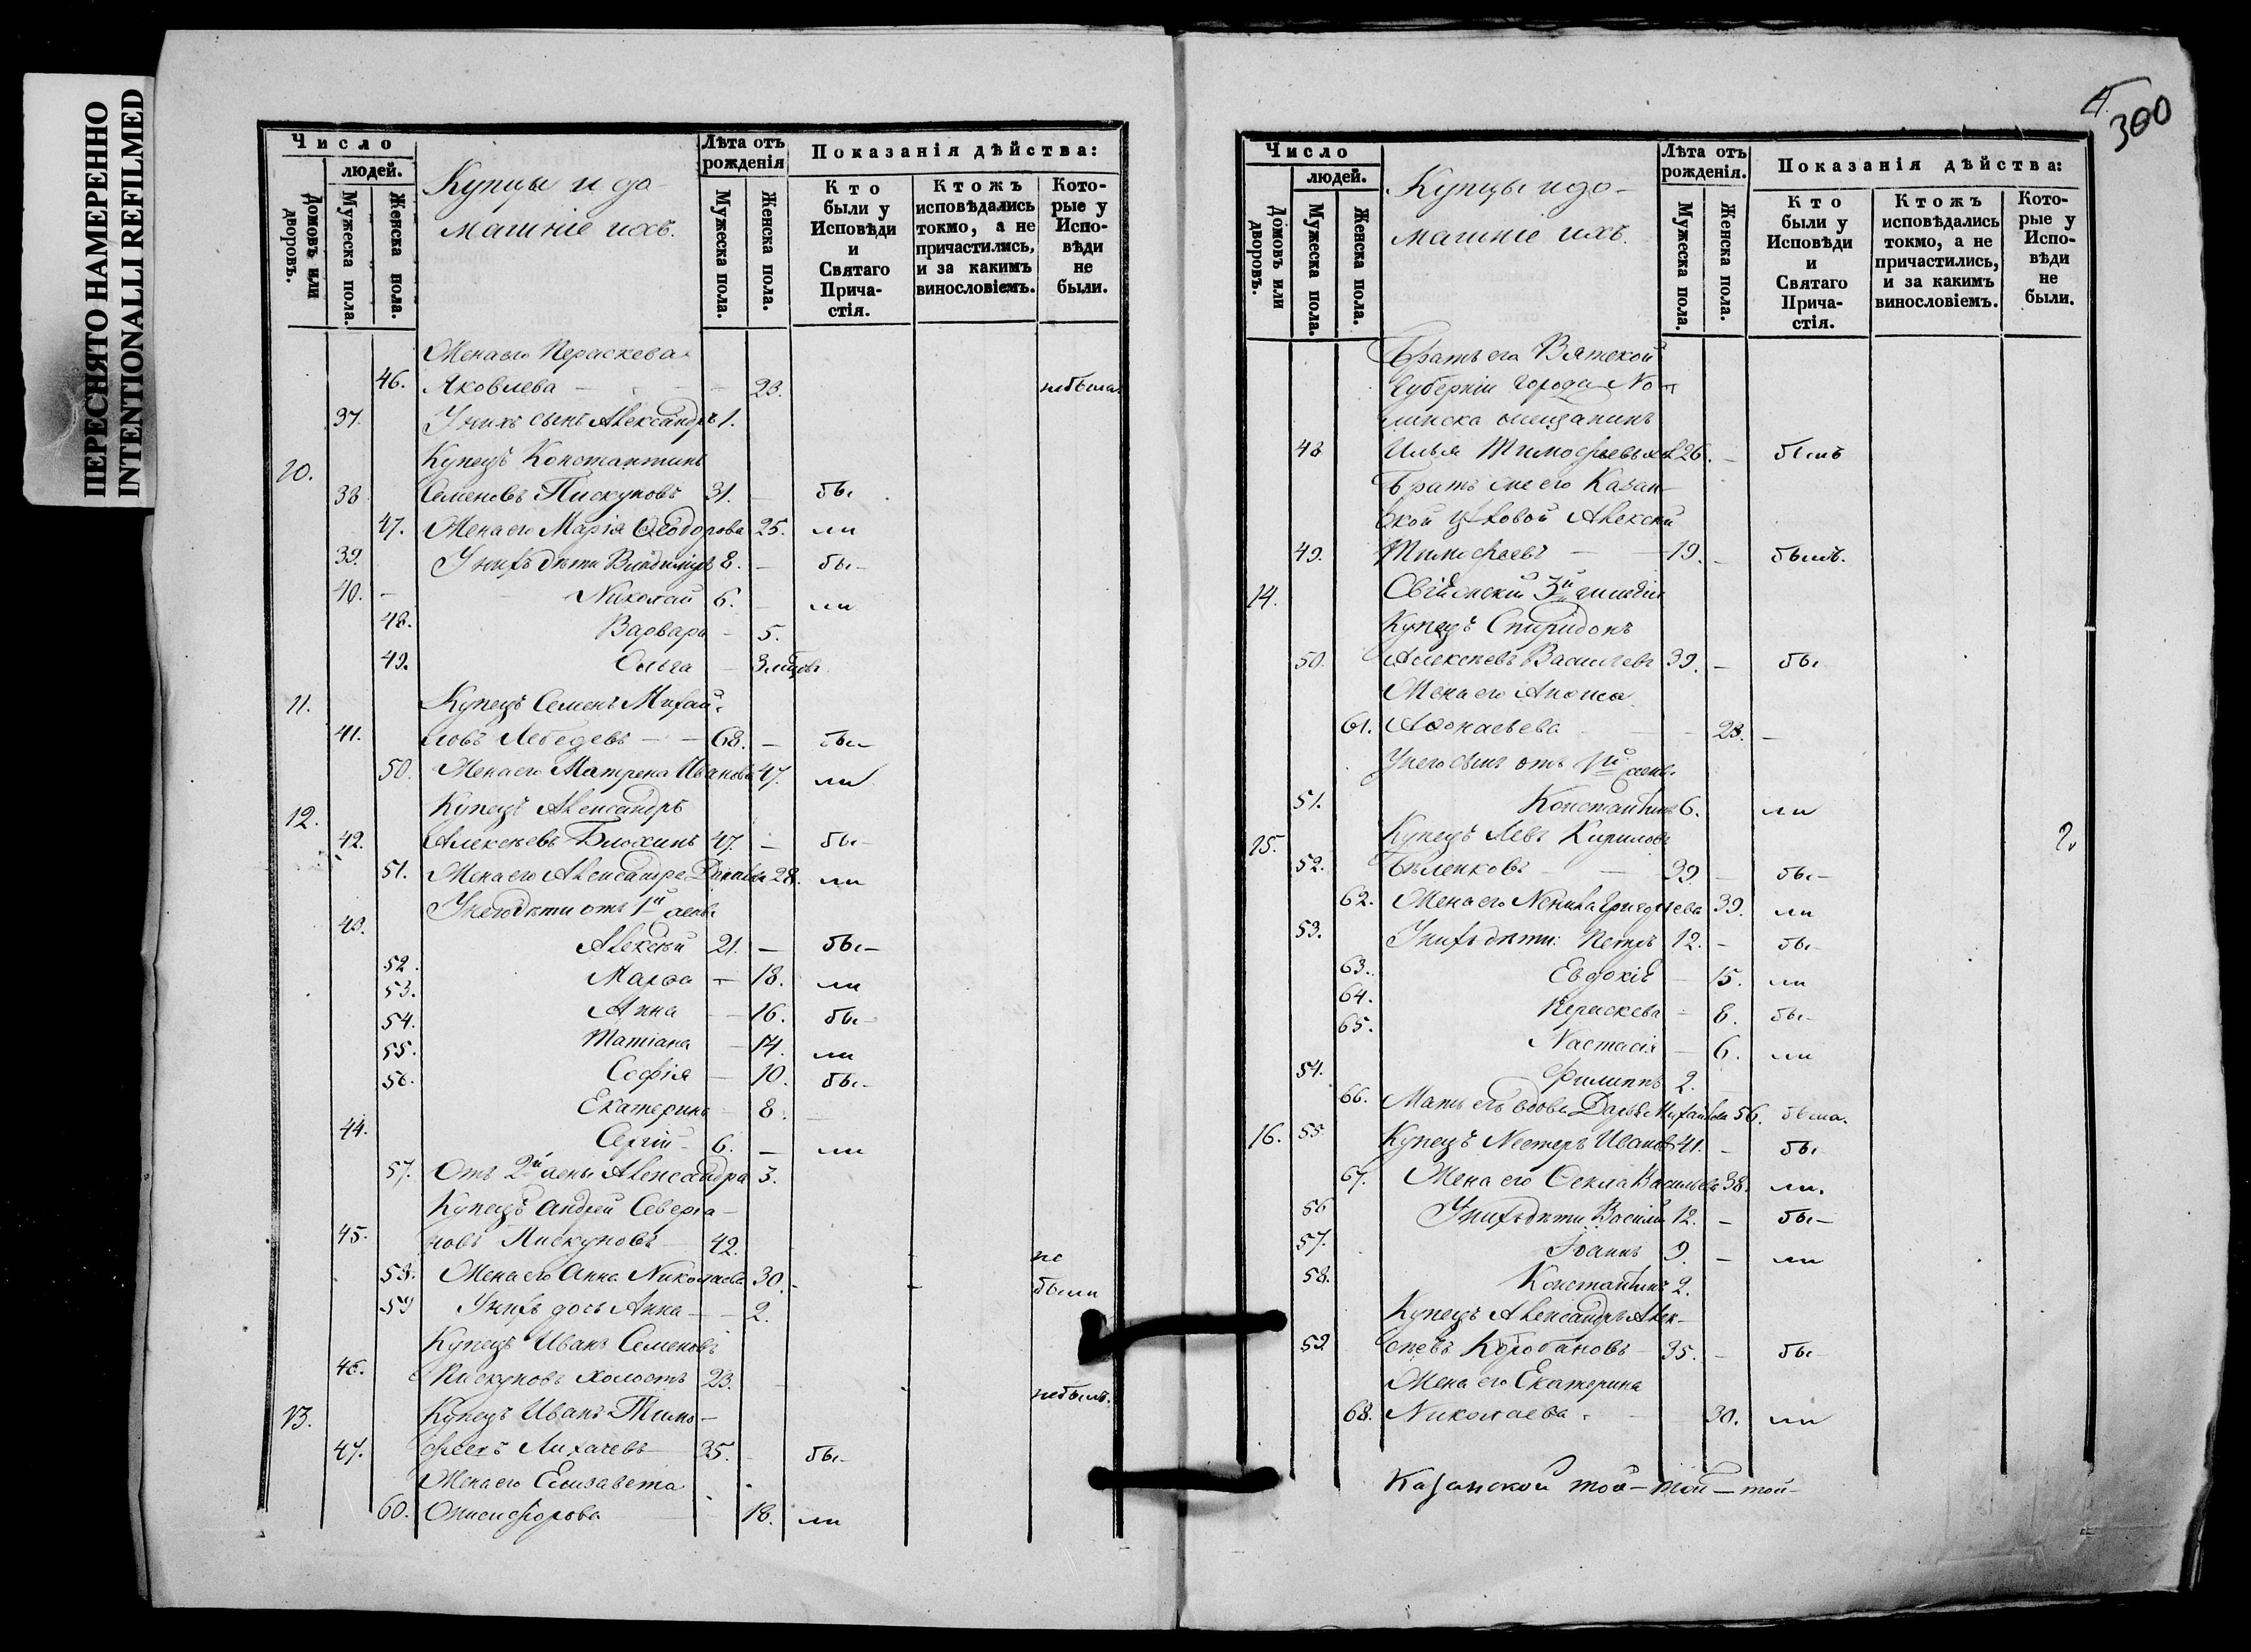 ПЕРЕСНЯТО НАМЕРЕННО
INTENTIONALLI REFILMED
Число
людей.
Домовъ или дворовъ.
Мужеска пола.
Женска пола.
Купцы и до-
машніе ихъ.
Лѣта отъ рожденія
Мужеска пола.
Женска пола.
Показанія дѣйства:
Кто были у Исповѣди и Святаго Прича-стія.
Ктожъ исповѣдались токмо, а не причастились, и за какимъ винословіемъ.
Кото-рые у Испо-вѣди не были.
Жена его Параскева
46. Яковлева — 23. не была
37. У нихъ сынъ Александръ 1.
10. Купецъ Константинъ
38 Семеновъ Пискуновъ 31. — бы
47. Жена его Марія Ѳеодорова 25. ли
39. У нихъ дѣти Владимиръ 8. — бы-
40. — Николай 6. — ли
48. Варвара — 5.
49. Ольга — 3 мцовъ
11. Купецъ Семенъ Михай-
41. ловъ Лебедевъ — 68. — бы-
50. Жена его Матрена Иванова 47. ли
12. Купецъ Александръ
42. Алексѣевъ Блохинъ 47. — бы-
51. Жена его Александра 28. ли
У него дѣти отъ 1й жены
43. Алексѣй 21. — бы-
52. Марѳа — 18. ли
53. Анна — 16. бы-
54. Татіана — 14. ли
55. Софія — 10. бы-
56. Екатерина — 8.
44. Сергій 6. — ли
57. Отъ 2й жены Александра 3.
Купецъ Андрей Северья-
45. новъ Пискуновъ 42. не
58. Жена его Анна Николаева 30. - были
59 У нихъ дочь Анна — 2.
Купецъ Иванъ Семеновъ
46. Пискуновъ холостъ 23. не былъ.
13. Купецъ Иванъ Тимо-
47. феевъ Лихачевъ 35. бы-
Жена его Елизавета
60. Онисифорова 18. ли
4.
300
Число
людей.
Домовъ или дворовъ.
Мужеска пола.
Женска пола.
Купцы и до-
машніе ихъ.
Лѣта отъ рожденія.
Мужеска пола.
Женска пола.
Показанія дѣйства:
Кто были у Исповѣди и Святаго Прича-стія.
Ктожъ исповѣдались токмо, а не причастились, и за какимъ винословіемъ.
Кото-рые у Испо-вѣди не были.
Братъ его Вятской
Губерніи города Но-
линска мещанинъ
48 Илья Тимофѣевъ 26. — былъ
Братъ же его Казан-
ской Алексѣй
49. Тимофѣевъ — 19. — былъ.
14. 3й гильдіи
Купецъ Спиридонъ
50. Алексѣевъ Васильевъ 39. — бы-
Жена его
61. Аѳонасьева 23. —
У него сынъ отъ 1й жены
51. Константинъ 6. ли
15. Купецъ Левъ Кириловъ
52. Бѣленковъ — 39. — бы-
62. Жена его Григорьева 39. ли
53. У нихъ дѣти: Петръ 12. — бы-
63. Евдокія — 15. ли
64. Параскева — 8. бы-
65. Настасія — 6. ли
54. Филиппъ 2.
66. Мать его вдова Дарья Михайлова 56. была.
16. 55. Купецъ Нестеръ Ивановъ 41. — бы-
67. Жена его Ѳекла Васильева 38. ли.
56 У нихъ дѣти Василій 12. — бы-
57. Іоаннъ 9. — ли
58. Константинъ 2.
Купецъ Александръ Алек-
59. сѣевъ Коробановъ 35. — бы-
Жена его Екатерина
68. Николаева. 30. ли
2.
Казанской той — той — той-